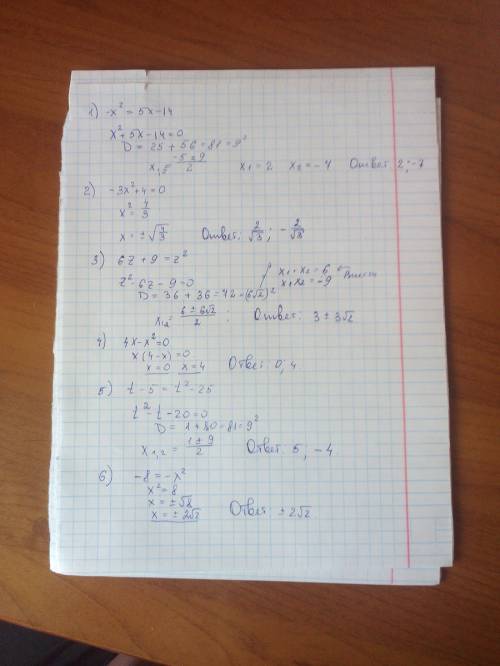 1) -x² = 5x-14
x²+5x-14=0
D = 25 + 56 = 81 = 9²
x₁,₂ = (-5±9)/2   x₁=2   x₂=-7   Ответ: 2; -7
2) -3x²+4=0
x² = 4/3
x = ±√(4/3)   Ответ: 2/√3; -2/√3
3) 6z + 9 = z²
z²-6z-9=0   x₁+x₂=6
D = 36 + 36 = 72 = (6√2)²   x₁x₂=-9
x₁,₂ = (6±6√2)/2   Ответ: 3±3√2
4) 4x-x²=0
x(4-x)=0
x=0   x=4   Ответ: 0; 4
5) t-5 = t²-25
t²-t-20=0
D = 1+80=81=9²
x₁,₂ = (1±9)/2   Ответ: 5; -4
6) -8=-x²
x²=8
x=±√8
x=±2√2   Ответ: ±2√2